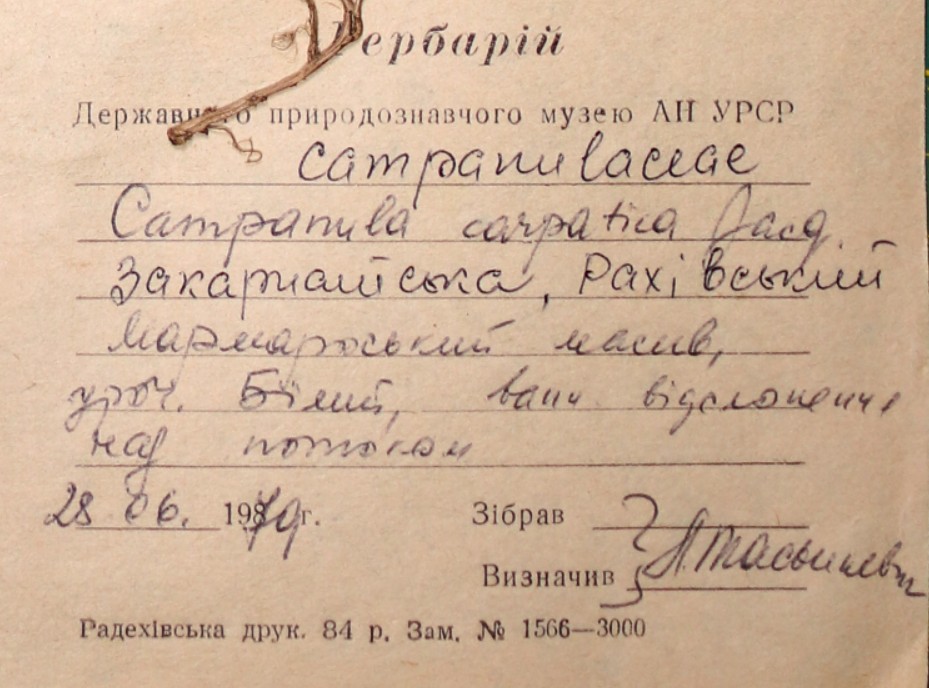 Гербарій
Державного природознавчого музею АН УРСР
Campanulaceae
Campanula carpatica Jacq.
Закарпатська, Рахівський
Мармароський масив,
уроч. Білий, вапн відслонення
над потоком
28 06. 1979 г.
Зібрав
Визначив Л. Тасєнкевич
Радехівська друк. 84 р. Зам. № 1566—3000